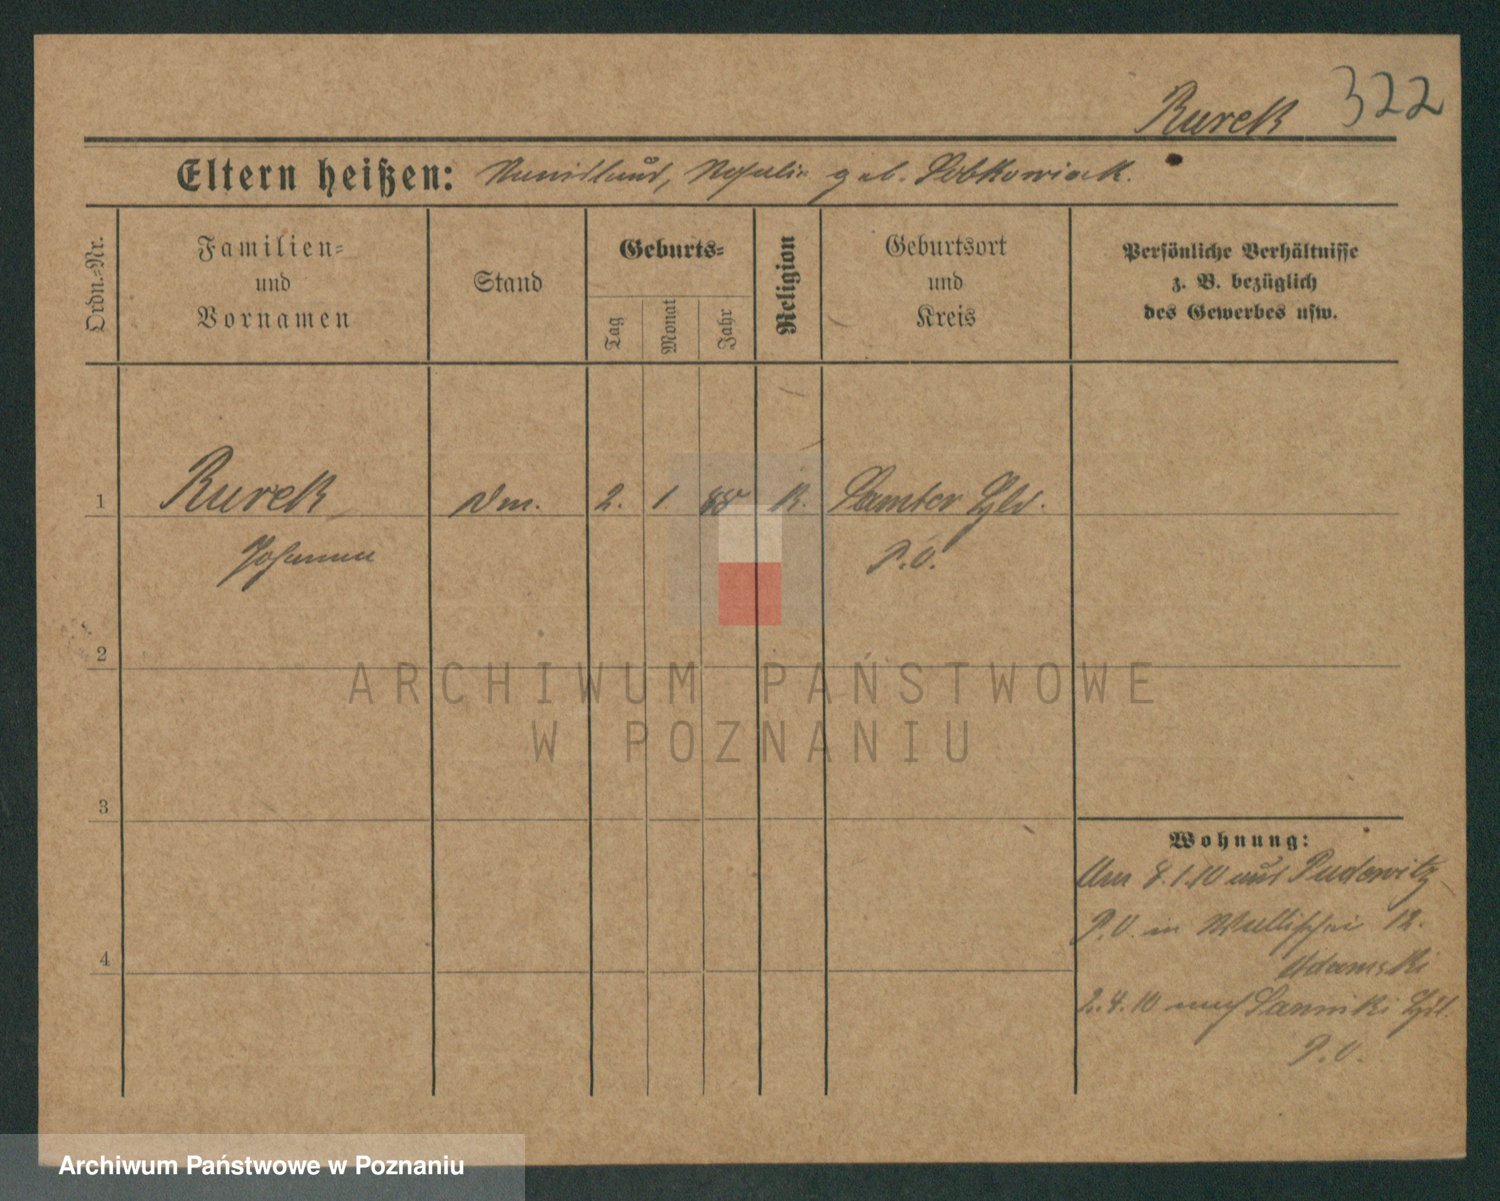 Rurek 322
Eltern heißen: geb. Sobkowiak.
Ordn.-Nr.
Familien-
und
Vornamen
Stand
Geburts-
Tag
Monat
Jahr
Religion
Geburtsort
und
Kreis
Persönliche Verhältnisse
z. B. bezüglich
des Gewerbes usw.
1 Rurek Dm. 2. 1 88 K. Samter
Johanna P.O.
2
3
4
ARCHIWUM PAŃSTWOWE
W POZNANIU
Wohnung:
Am 8.1.10 aus Pudewitz
P.O. in Wallischei 12.
Adamski
2.4.10 nach
P.O.
Archiwum Państwowe w Poznaniu